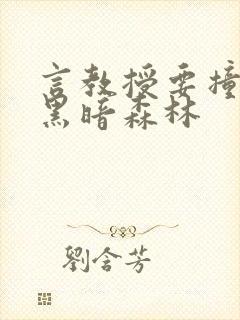 言教授要撞
黑暗森林
劉含芳